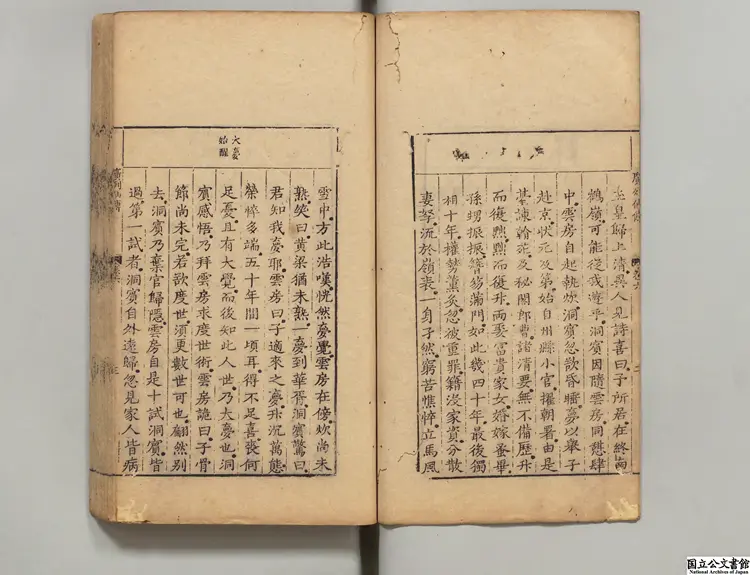 玉皇歸上清異人見詩喜曰子所居在終南
鶴嶺可能從我遊乎洞賓因隨雲房同憇肆
中雲房自起執炊洞賓忽欲昏睡夢以舉子
赴京狀元及第始自州縣小官擢朝署由是
臺諫翰苑及秘閣郎曹諸清要無不備歷升
而復黜黜而復升兩娶富貴家女婚嫁蚤畢
孫甥振振簪笏滿門如此幾四十年最後獨
相十年權勢薰炙忽被重罪籍沒家資分散
妻孥流於嶺表一身孑然窮苦憔悴立馬風
大夢
始醒
雪中方此浩嘆恍然夢覺雲房在傍炊尚未
熟笑曰黃粱猶未熟一夢到華胥洞賓驚曰
君知我夢耶雲房曰子適來之夢升沉萬態
榮悴多端五十年間一頃耳得不足喜喪何
足憂且有大覺而後知此人世乃大夢也洞
賓感悟乃拜雲房求度世術雲房詭曰子骨
節尚未完若欲度世須更數世可也翩然別
去洞賓乃棄官歸隱雲房自是十試洞賓皆
過第一試者洞賓自外遠歸忽見家人皆病
国立公文書館
National Archives of Japan